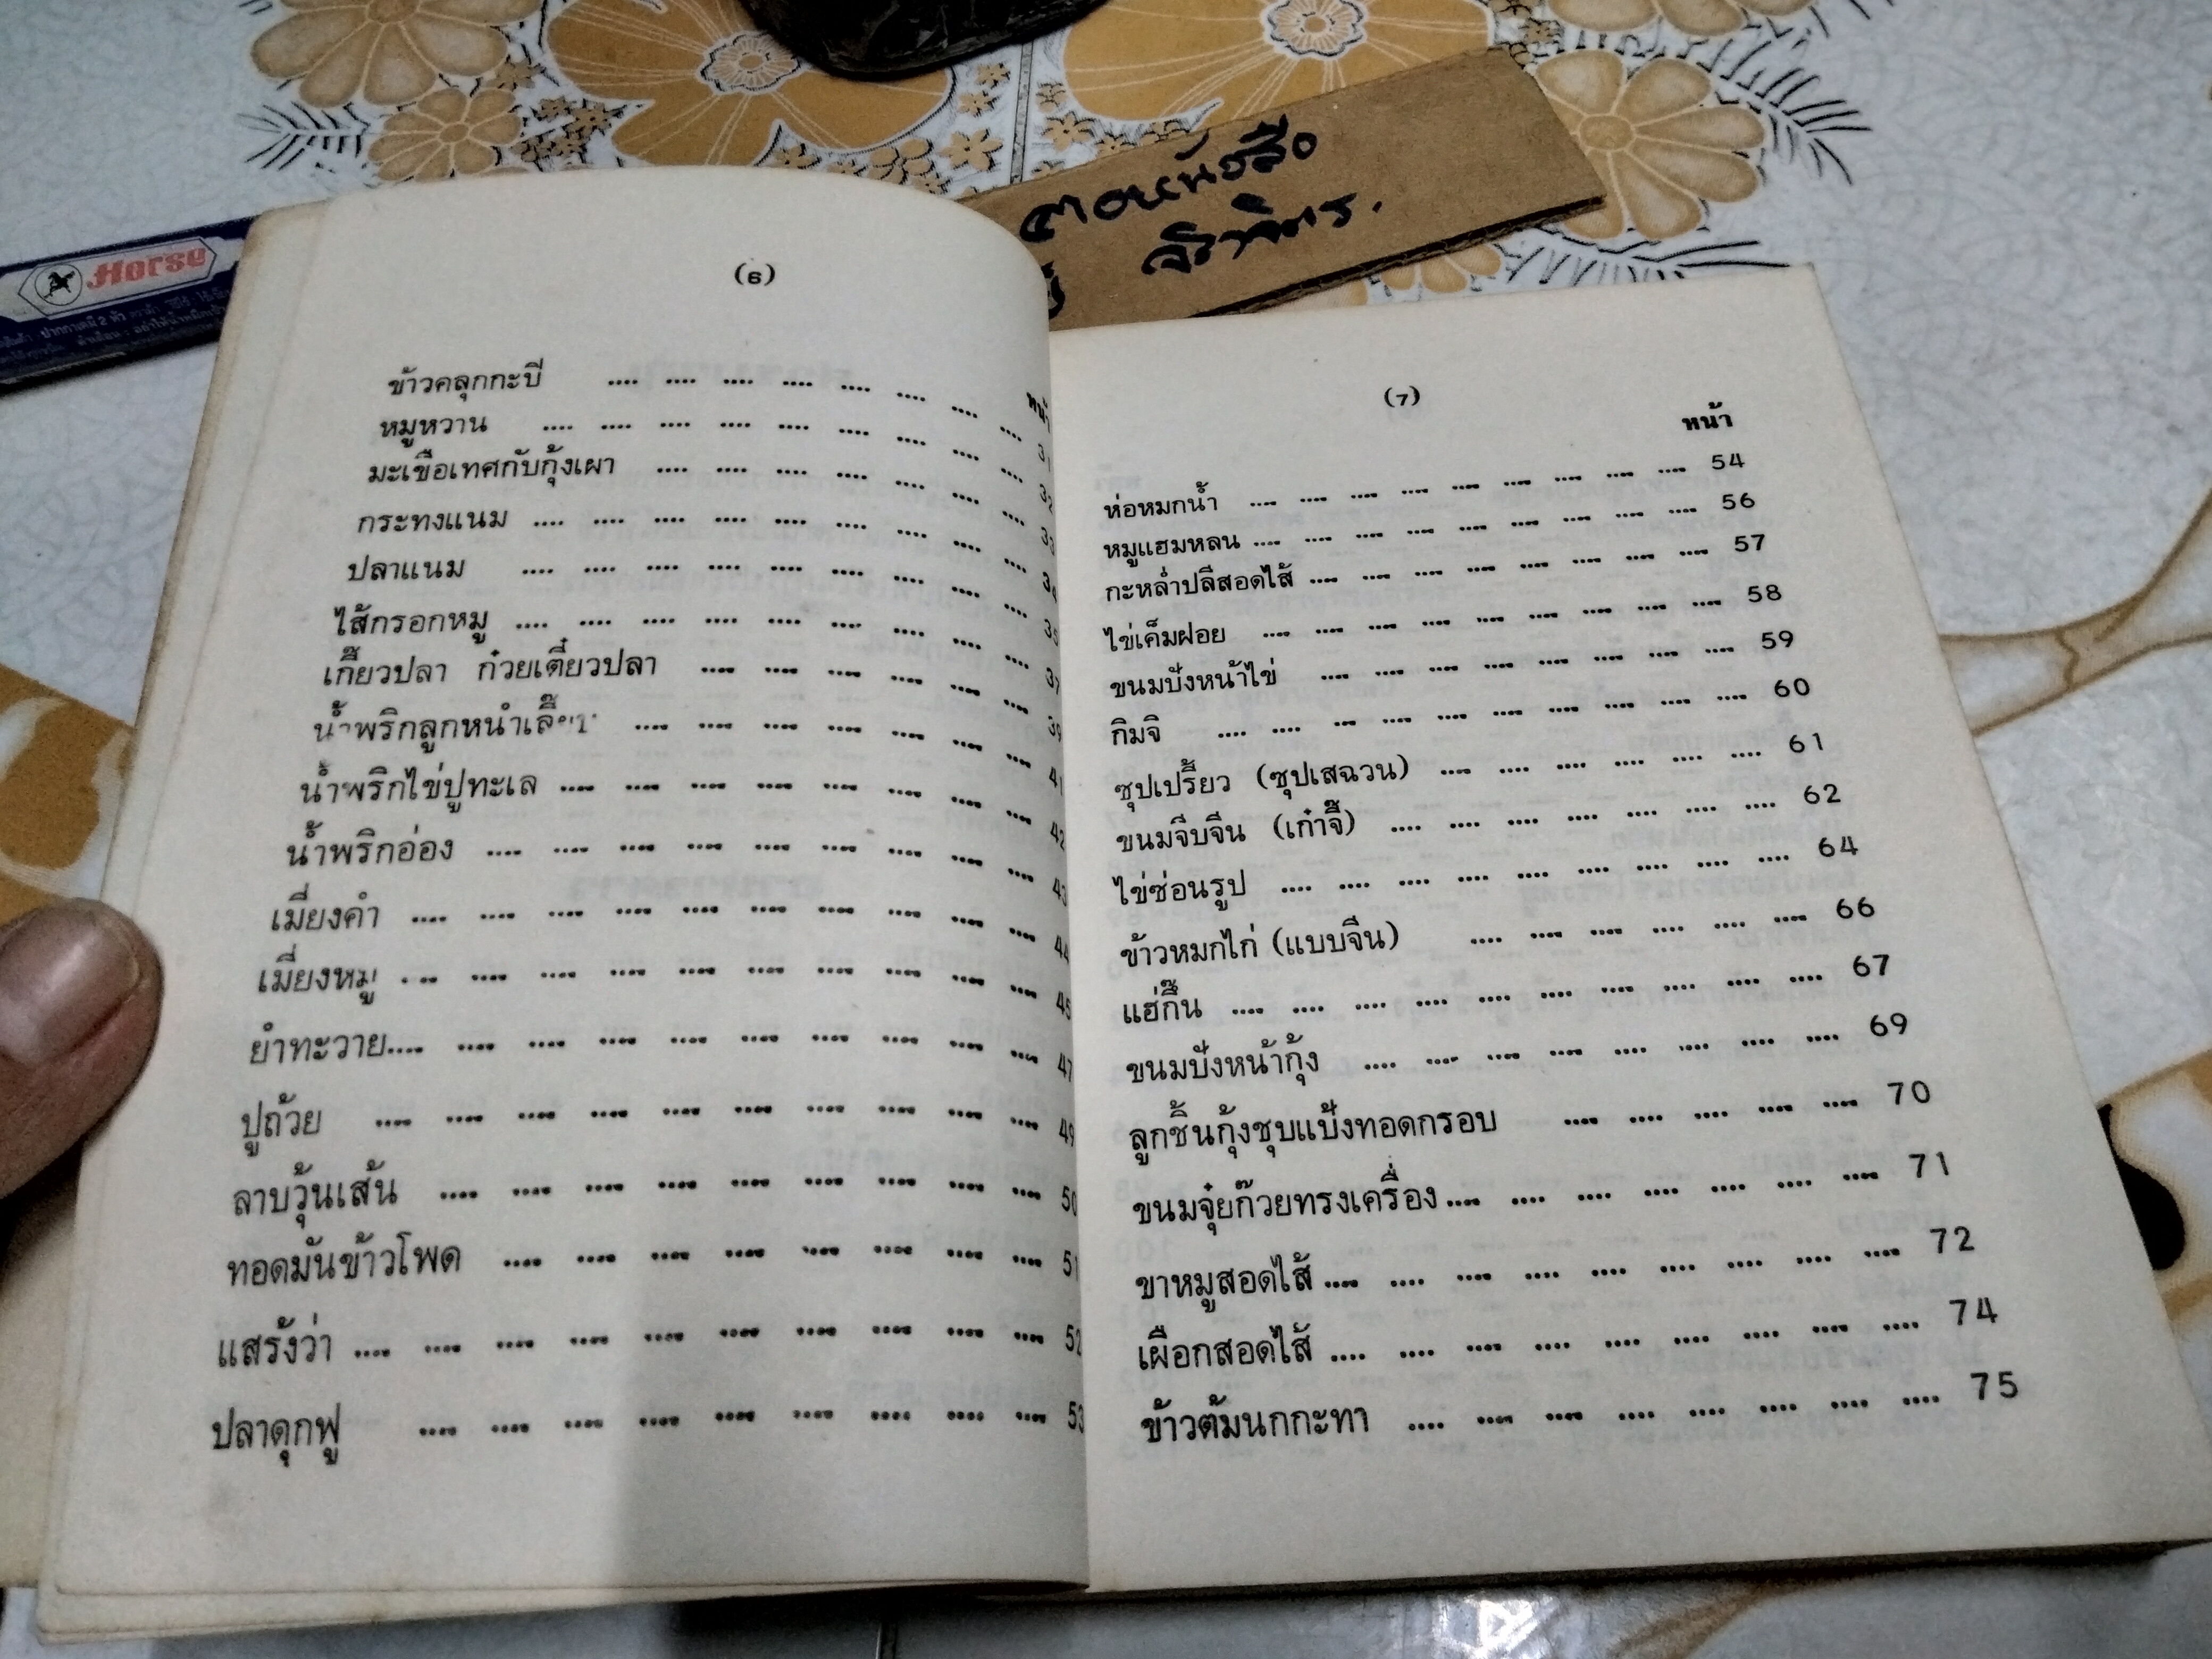 Horse
ปากกาเคมี 2 หัว
ตามหนังสือ
(6)
หน้า
ข้าวคลุกกะปี .... .... .... .... .... .... .... .... 31
หมูหวาน .... .... .... .... .... .... .... .... .... 32
มะเขือเทศกับกุ้งเผา .... .... .... .... .... .... .... 33
กระทงแนม .... .... .... .... .... .... .... .... .... 34
ปลาแนม .... .... .... .... .... .... .... .... .... 35
ไส้กรอกหมู .... .... .... .... .... .... .... .... .... 37
เกี๊ยวปลา ก๋วยเตี๋ยวปลา .... .... .... .... .... .... 39
น้ำพริกลูกหนำเลี๊ยบ .... .... .... .... .... .... .... 41
น้ำพริกไข่ปูทะเล .... .... .... .... .... .... .... .... 42
น้ำพริกอ่อง .... .... .... .... .... .... .... .... .... 43
เมี่ยงคำ .... .... .... .... .... .... .... .... .... .... 44
เมี่ยงหมู .... .... .... .... .... .... .... .... .... .... 45
ยำทะวาย.... .... .... .... .... .... .... .... .... .... 47
ปูถ้วย .... .... .... .... .... .... .... .... .... .... 49
ลาบวุ้นเส้น .... .... .... .... .... .... .... .... .... 50
ทอดมันข้าวโพด .... .... .... .... .... .... .... .... 51
แสร้งว่า .... .... .... .... .... .... .... .... .... .... 52
ปลาดุกฟู .... .... .... .... .... .... .... .... .... 53
(7)
หน้า
ห่อหมกน้ำ .... .... .... .... .... .... .... .... .... 54
หมูแฮมหลน .... .... .... .... .... .... .... .... .... 56
กะหล่ำปลีสอดไส้ .... .... .... .... .... .... .... .... 57
ไข่เค็มฝอย .... .... .... .... .... .... .... .... .... 58
ขนมปังหน้าไข่ .... .... .... .... .... .... .... .... 59
กิมจิ .... .... .... .... .... .... .... .... .... .... 60
ซุปเปรี้ยว (ซุปเสฉวน) .... .... .... .... .... .... 61
ขนมจีบจีน (เก๋าจี๊) .... .... .... .... .... .... .... 62
ไข่ซ่อนรูป .... .... .... .... .... .... .... .... .... 64
ข้าวหมกไก่ (แบบจีน) .... .... .... .... .... .... 66
แฮ่กึ๊น .... .... .... .... .... .... .... .... .... .... 67
ขนมปังหน้ากุ้ง .... .... .... .... .... .... .... .... 69
ลูกชิ้นกุ้งชุบแป้งทอดกรอบ .... .... .... .... .... 70
ขนมจุ๋ยก๊วยทรงเครื่อง.... .... .... .... .... .... .... 71
ขาหมูสอดไส้ .... .... .... .... .... .... .... .... .... 72
เผือกสอดไส้ .... .... .... .... .... .... .... .... .... 74
ข้าวต้มนกกะทา .... .... .... .... .... .... .... .... 75